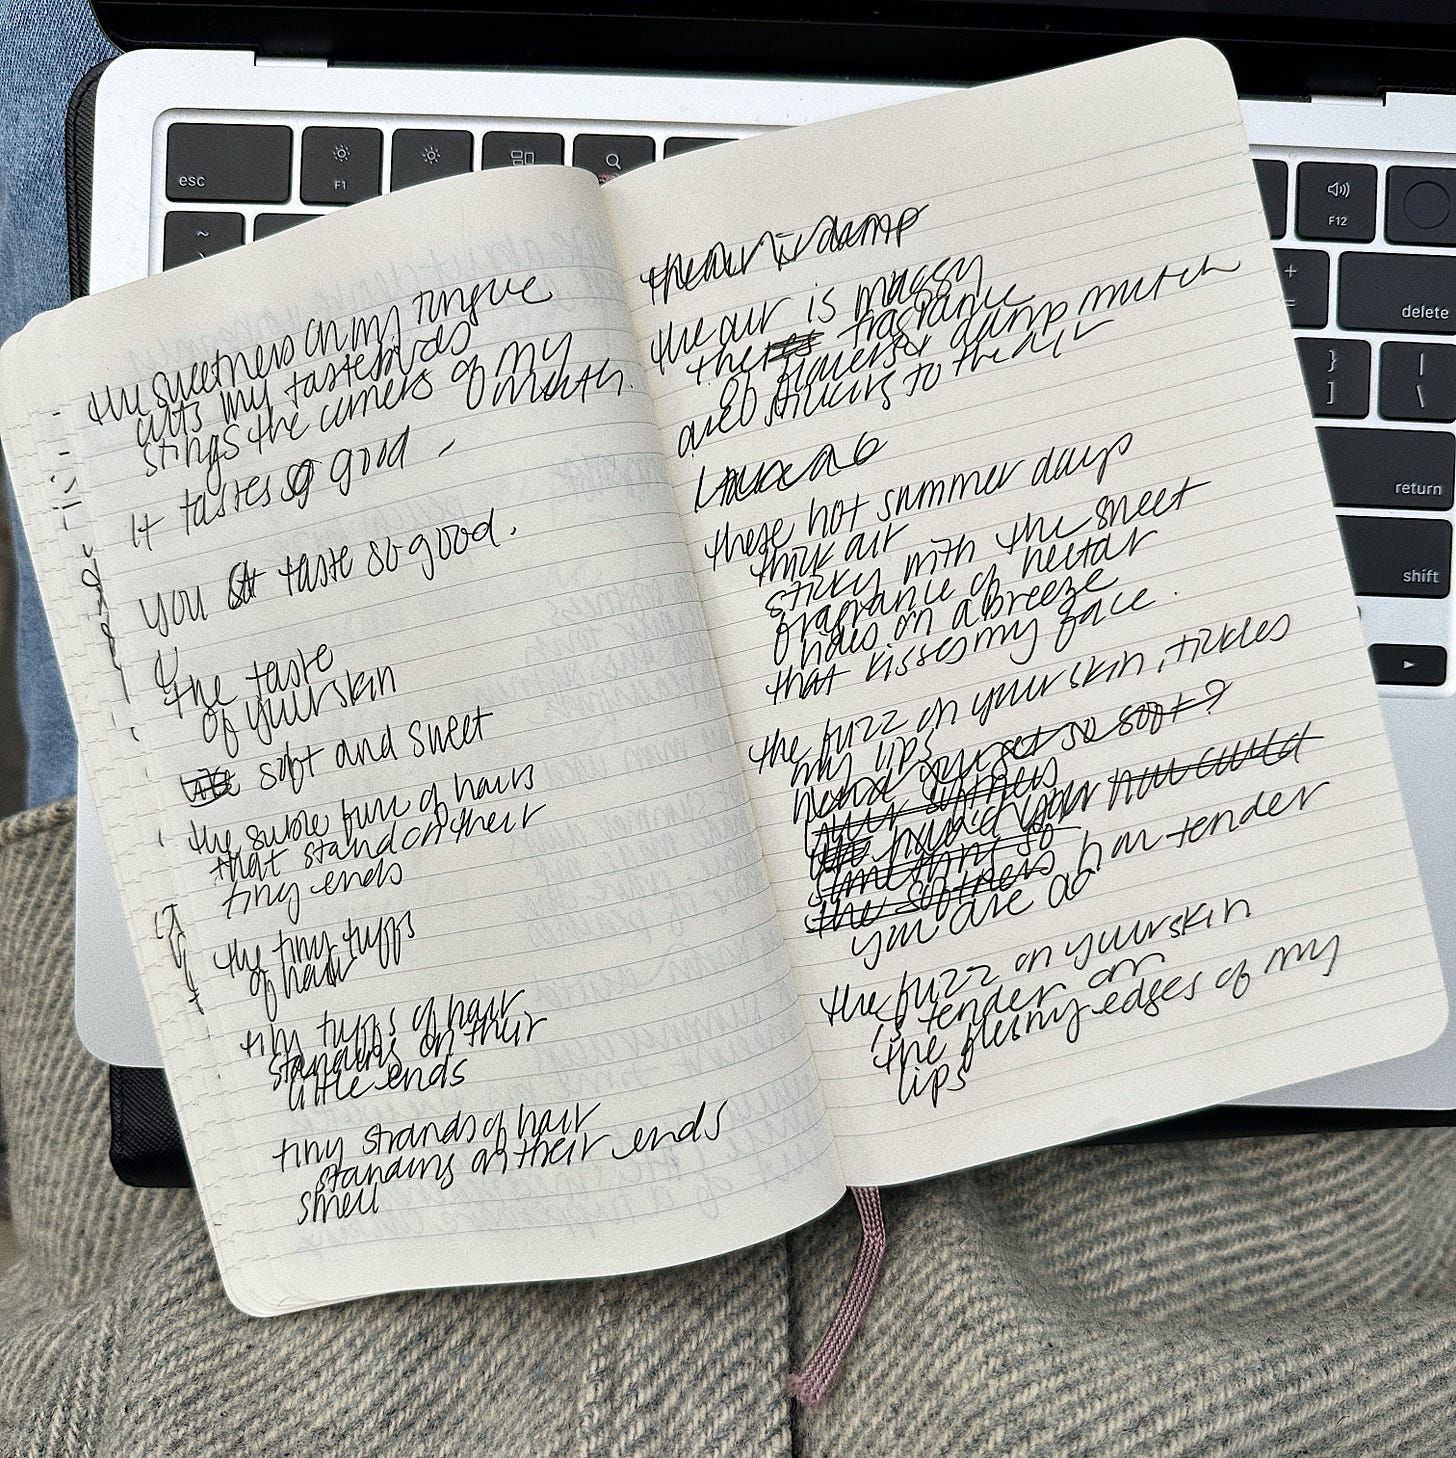 the sweetness on my tongue
cuts my tastebuds
stings the corners of my
mouth.
it tastes so good -
you taste so good.
the taste
of your skin
soft and sweet
the suble furr of hairs
that stand on their
tiny ends
the tiny tuffs
of hair
tiny tuffs of hair
standing on their
little ends
tiny strands of hair
standing on their ends
smell
the air is damp
the air is mossy
the fragrance
of flowers & damp mulch
sticks to the air
these hot summer days
thick air
sticky with the sweet
fragrance of nectar
rides on a breeze
that kisses my face.
the fuzz on your skin, tickles
my lips
how'd you get so soft?
your softness
how could
something so
the softness how tender
you are
the fuzz on your skin
is tender on
the fleshy edges of my
lips
esc
F1
F12
~
+
=
delete
}
]
|
\
return
shift